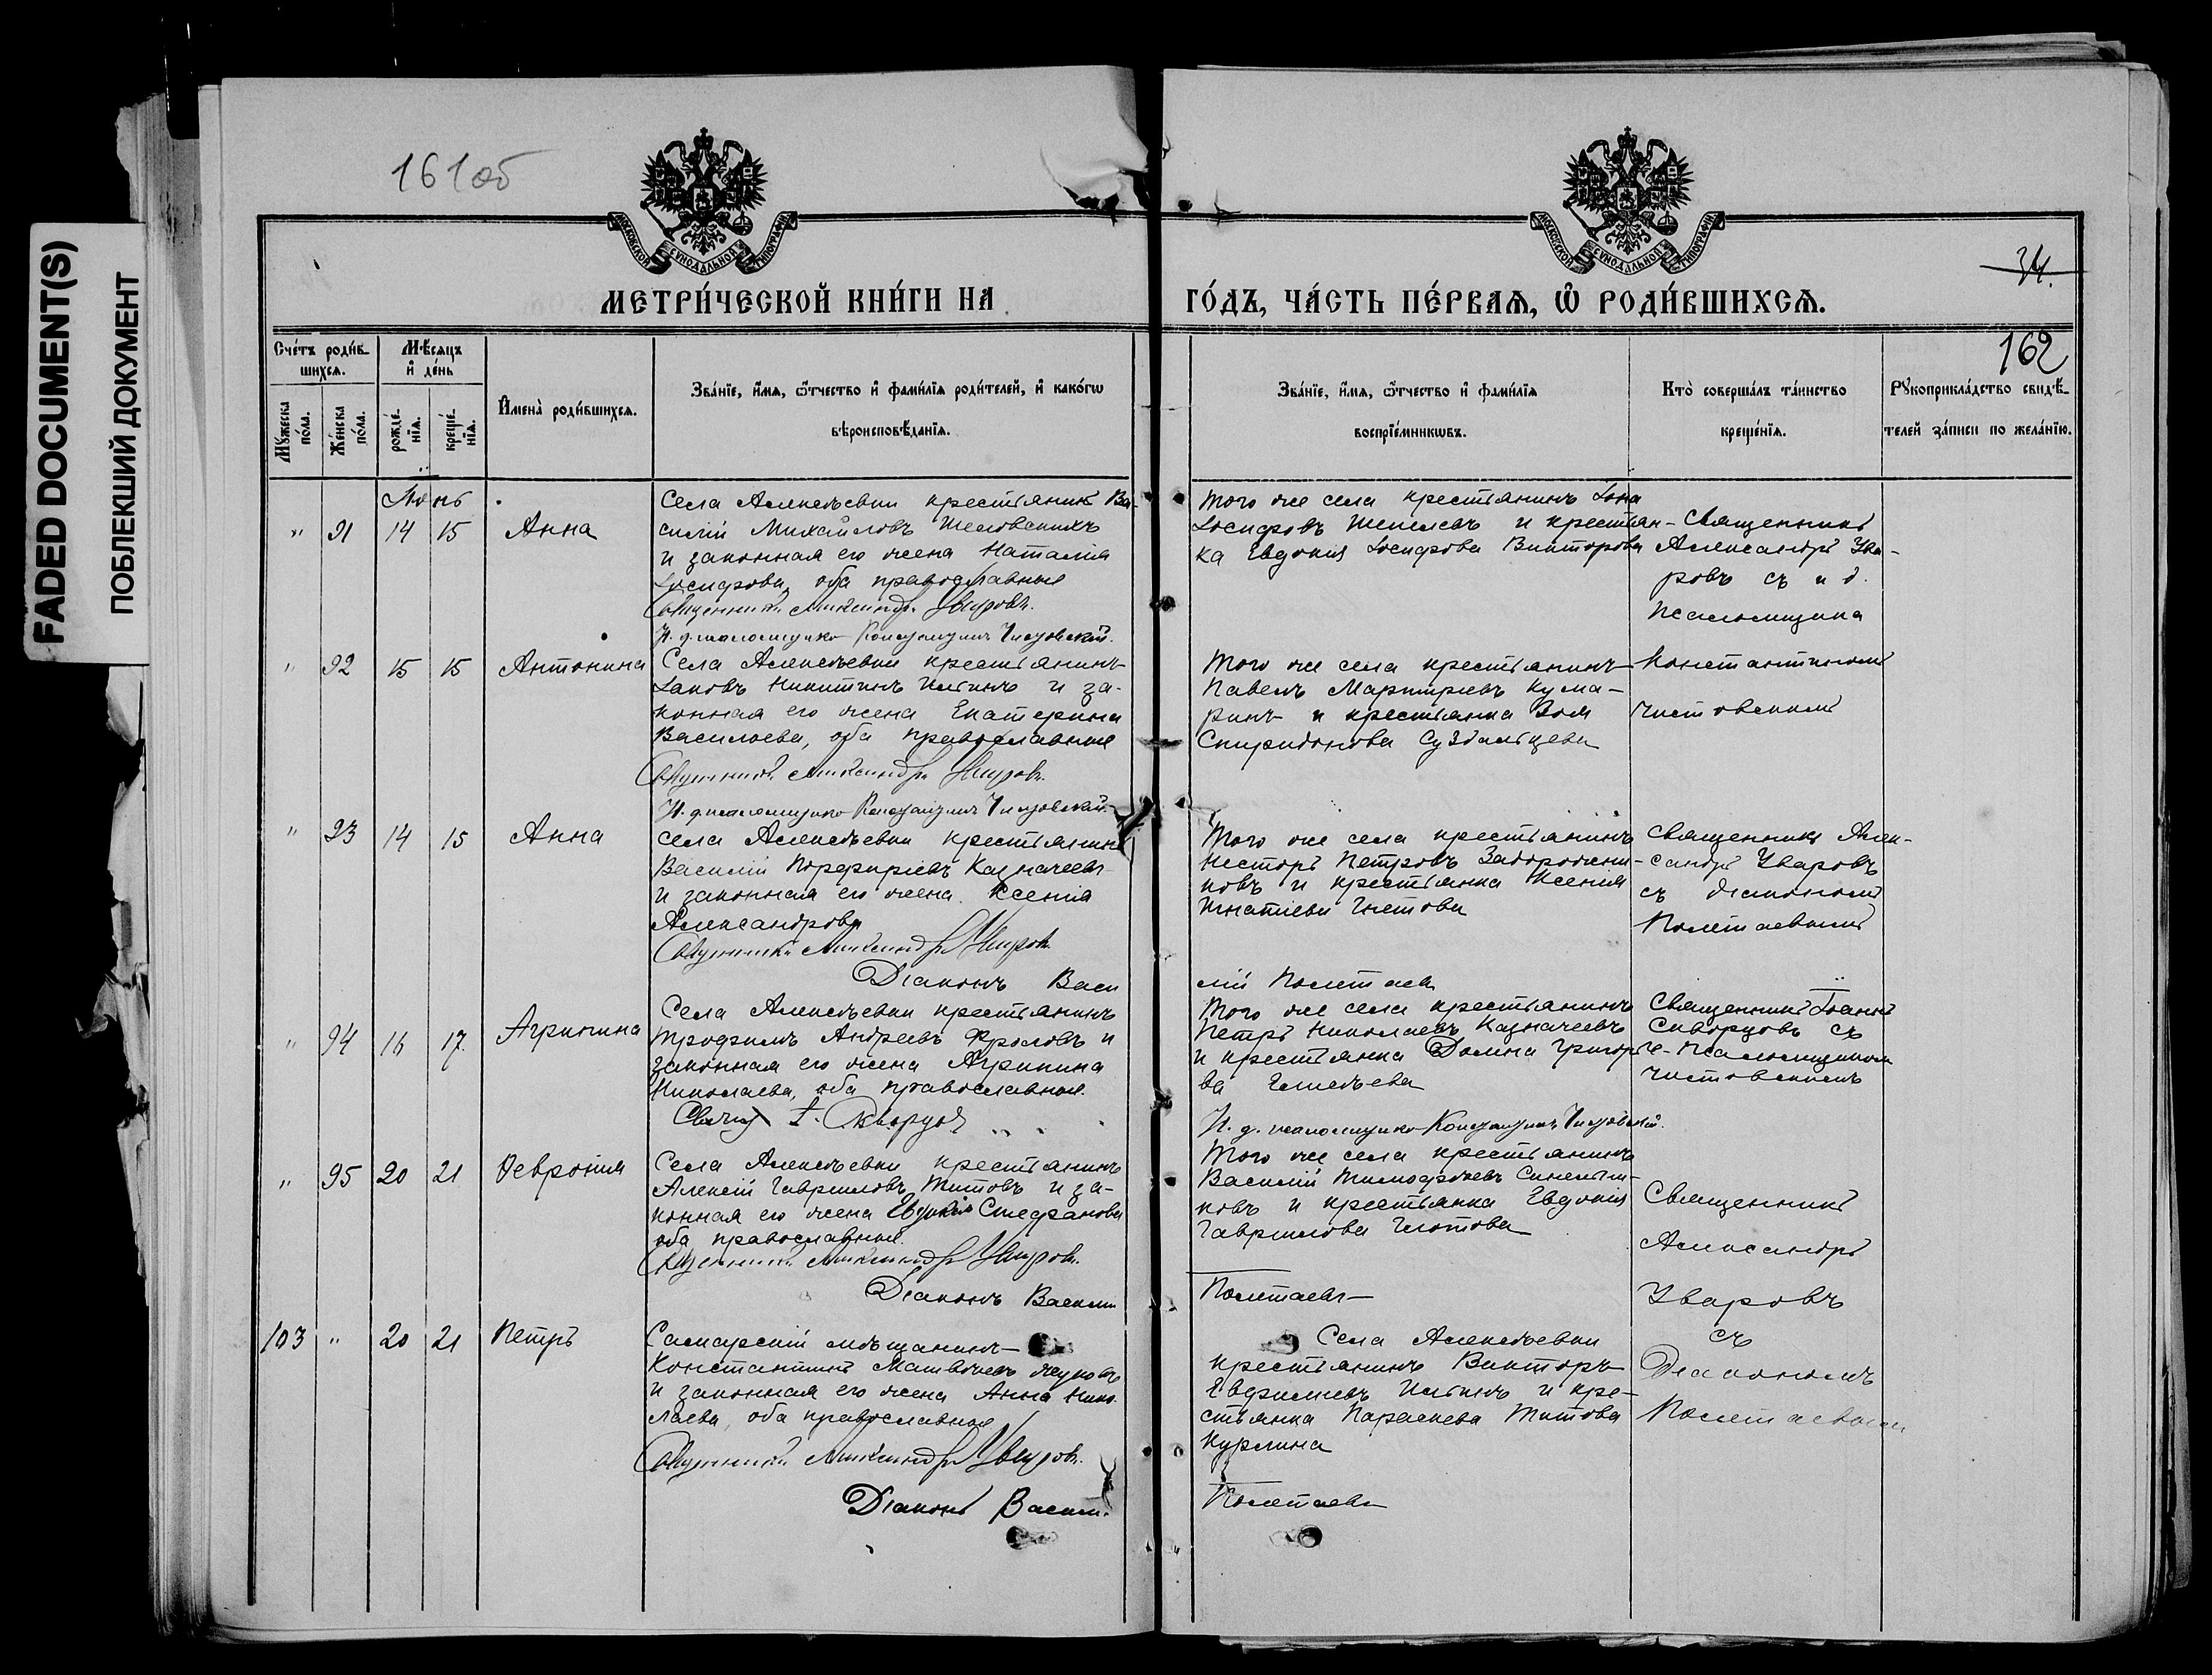 FADED DOCUMENT(S)
ПОБЛЕКШИЙ ДОКУМЕНТ
161об
МОСКОВСКОЙ СУНОДАЛЬНОЙ ТИПОГРАФІИ
МОСКОВСКОЙ СУНОДАЛЬНОЙ ТИПОГРАФІИ
34.
МЕТРИ́ЧЕСКОЙ КНИ́ГИ НА
ГО́ДЪ, ЧА́СТЬ ПЕ́РВАѦ, Ѡ҆ РОДИ́ВШИХСѦ.
162
Сче́тъ роди́вшихсѧ.
Мꙋ́жеска по́ла.
Же́нска по́ла.
Мѣ́сѧцъ и҆ де́нь
рожде́нїѧ.
креще́нїѧ.
И҆мена̀ роди́вшихсѧ.
Зва́нїе, и҆́мѧ, ѻ҆́тчество и҆ фами́лїѧ роди́телей, и҆ како́гѡ
вѣроисповѣ́данїѧ.
Зва́нїе, и҆́мѧ, ѻ҆́тчество и҆ фами́лїѧ
воспрїе́мникѡвъ.
Кто̀ соверша́лъ та́инство
креще́нїѧ.
Рꙋкоприкла́дство свидѣ́-
телей за́писи по жела́нїю.
Іюнь
" 91 14 15 Анна
Села Алексѣевки крестьянинъ Ва-
силій Михайловъ
и законная его жена Наталія
Іосифова, оба православные
Священникъ Александръ Уваровъ.
И. д. псаломщика Константинъ Чистовскій.
Того же села крестьянинъ Іона
Іосифовъ Шешлевъ и крестьян-
ка Евдокія Іосифова Викторова
Священникъ
Александръ Ува-
ровъ съ и д.
псаломщика
" 92 15 15 Антонина
Села Алексѣевки крестьянинъ
Іаковъ Никитинъ Ильинъ и за-
конная его жена Екатерина
Васильева, оба православные
Священникъ Александръ Уваровъ.
И. д. псаломщика Константинъ Чистовскій.
Того же села крестьянинъ
Павелъ Мартиріевъ Кума-
ринъ и крестьянка Зоя
Спиридонова Суздальцева
Константиномъ
Чистовскимъ
" 93 14 15 Анна
Села Алексѣевки крестьянинъ
Василій Порфиріевъ Казначеевъ
и законная его жена Ксенія
Александрова
Священникъ Александръ Уваровъ.
Діаконъ Васи
лій Полетаев
Того же села крестьянинъ
Несторъ Петровъ Завороженн-
ковъ и крестьянка Ксенія
Игнатіева Глотова
Священникъ Алек-
сандръ Уваровъ
съ діакономъ
Полетаевымъ
" 94 16 17. Агрипина
Села Алексѣевки крестьянинъ
Трофимъ Андреевъ Фроловъ и
законная его жена Агрипина
Николаева, оба православные.
Свящ. І. Скворцовъ
Того же села крестьянинъ
Петръ Николаевъ Казначеевъ
и крестьянка Домна Григорье-
ва Елисѣева
И. д. псаломщика Константинъ Чистовскій.
Священникъ Іоаннъ
Скворцовъ съ
псаломщикомъ
Чистовскимъ
" 95 20 21 Ѳевронія
Села Алексѣевки крестьянинъ
Алексій Гавриловъ Титовъ и за-
конная его жена Евдокія Стефанова
оба православные.
Священникъ Александръ Уваровъ.
Діаконъ Васили
Того же села крестьянинъ
Василій Тимофѣевъ Синельни-
ковъ и крестьянка Евдокія
Гаврилова Глотова
Полетаевъ
Священникъ
Александръ
Уваровъ
съ
Діакономъ
Полетаевымъ
103 " 20 21 Петръ
Самарскій мѣщанинъ
Константинъ Матвѣевъ Жуковъ
и законная его жена Анна Нико-
лаева, оба православные
Священникъ Александръ Уваровъ.
Діаконъ Васили
Села Алексѣевки
крестьянинъ Викторъ
Евфиміевъ Ильинъ и кре-
стьянка Параскева Титова
Курлина
Полетаевъ